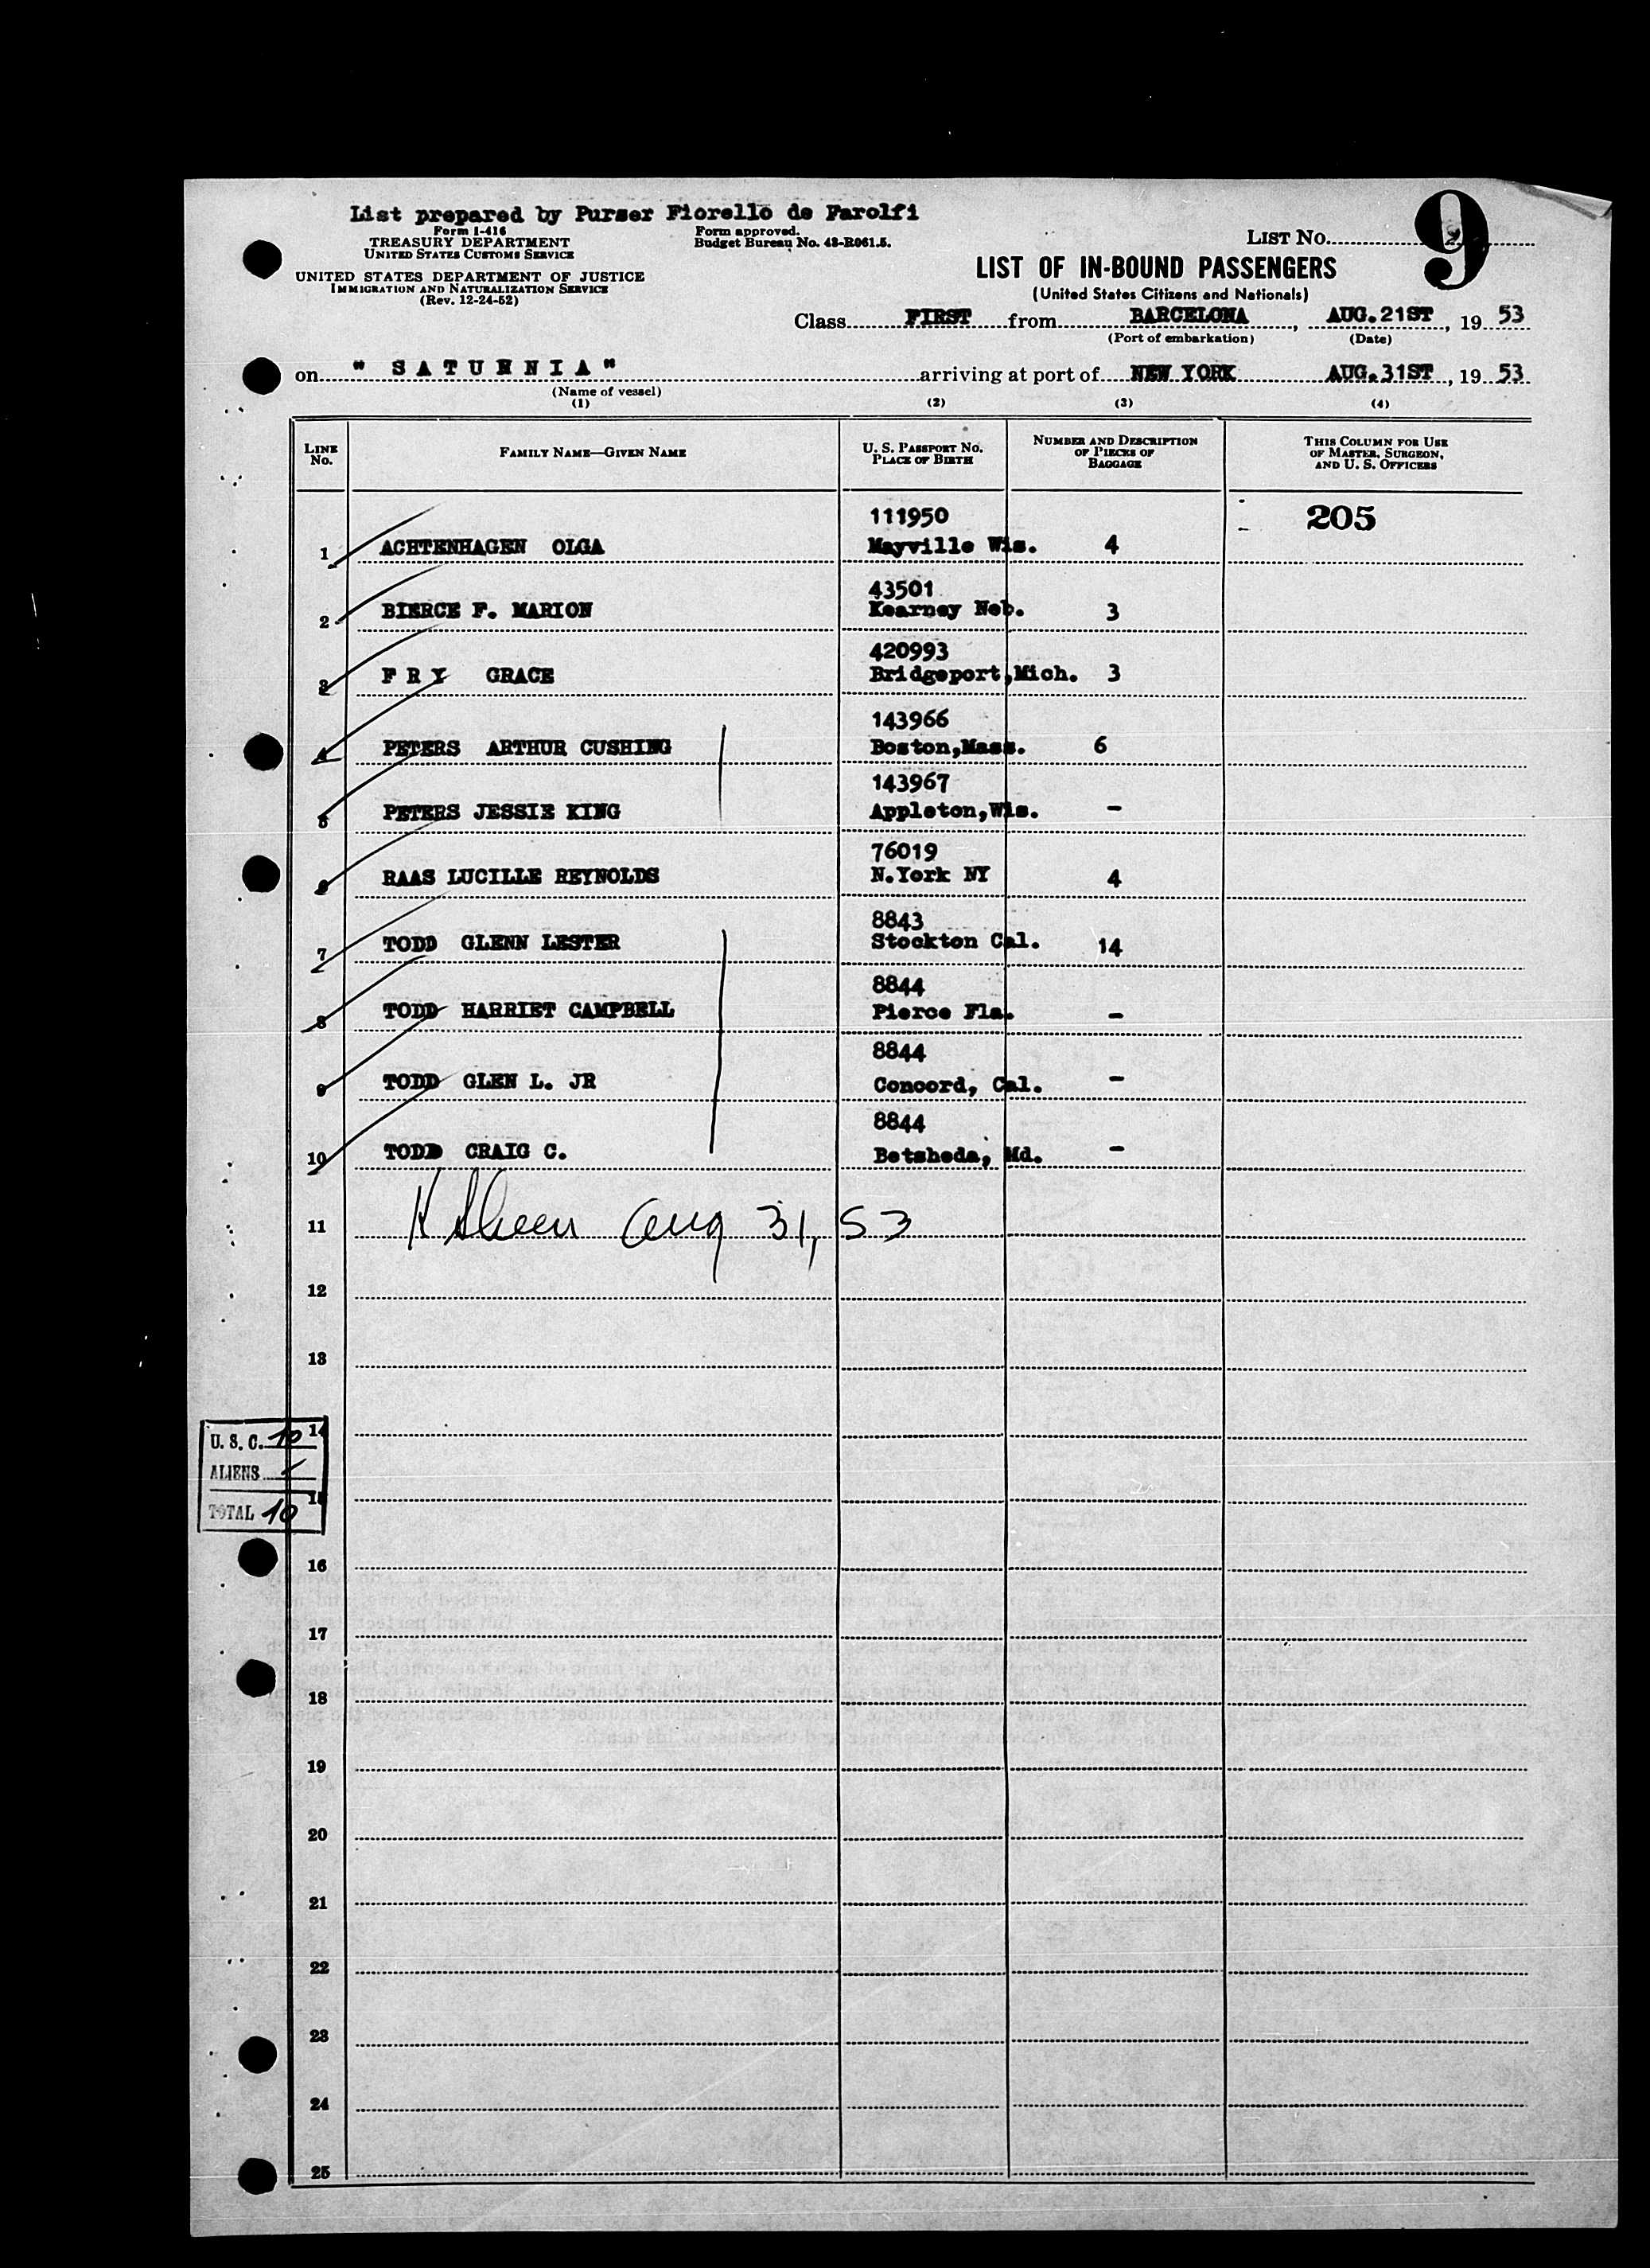 List prepared by Purser Fiorello de Farolfi
Form I-416
TREASURY DEPARTMENT
UNITED STATES CUSTOMS SERVICE
Form approved.
Budget Bureau No. 43-R061.5.
UNITED STATES DEPARTMENT OF JUSTICE
IMMIGRATION AND NATURALIZATION SERVICE
(Rev. 12-24-52)
LIST No. 9
LIST OF IN-BOUND PASSENGERS
(United States Citizens and Nationals)
Class FIRST from BARCELONA, AUG.21ST, 19 53
(Port of embarkation) (Date)
on " SATURNIA " arriving at port of NEW YORK AUG.31ST, 19 53
(Name of vessel)
(1) (2) (3) (4)
LINE No. FAMILY NAME—GIVEN NAME U. S. PASSPORT No. PLACE OF BIRTH NUMBER AND DESCRIPTION OF PIECES OF BAGGAGE THIS COLUMN FOR USE OF MASTER, SURGEON, AND U. S. OFFICERS
111950 205
1 ACHTENHAGEN OLGA Mayville Wis. 4
43501
2 BIERCE F. MARION Kearney Neb. 3
420993
3 F R Y GRACE Bridgeport,Mich. 3
143966
4 PETERS ARTHUR CUSHING Boston,Mass. 6
143967
5 PETERS JESSIE KING Appleton,Wis. -
76019
6 RAAS LUCILLE REYNOLDS N.York NY 4
8843
7 TODD GLENN LESTER Stockton Cal. 14
8844
8 TODD HARRIET CAMPBELL Pierce Fla. -
8844
9 TODD GLEN L. JR Concord, Cal. -
8844
10 TODD CRAIG C. Betsheda, Md. -
11 Aug 31, 53
12
13
14
U. S. C. 10
ALIENS
15
TOTAL 10
16
17
18
19
20
21
22
23
24
25